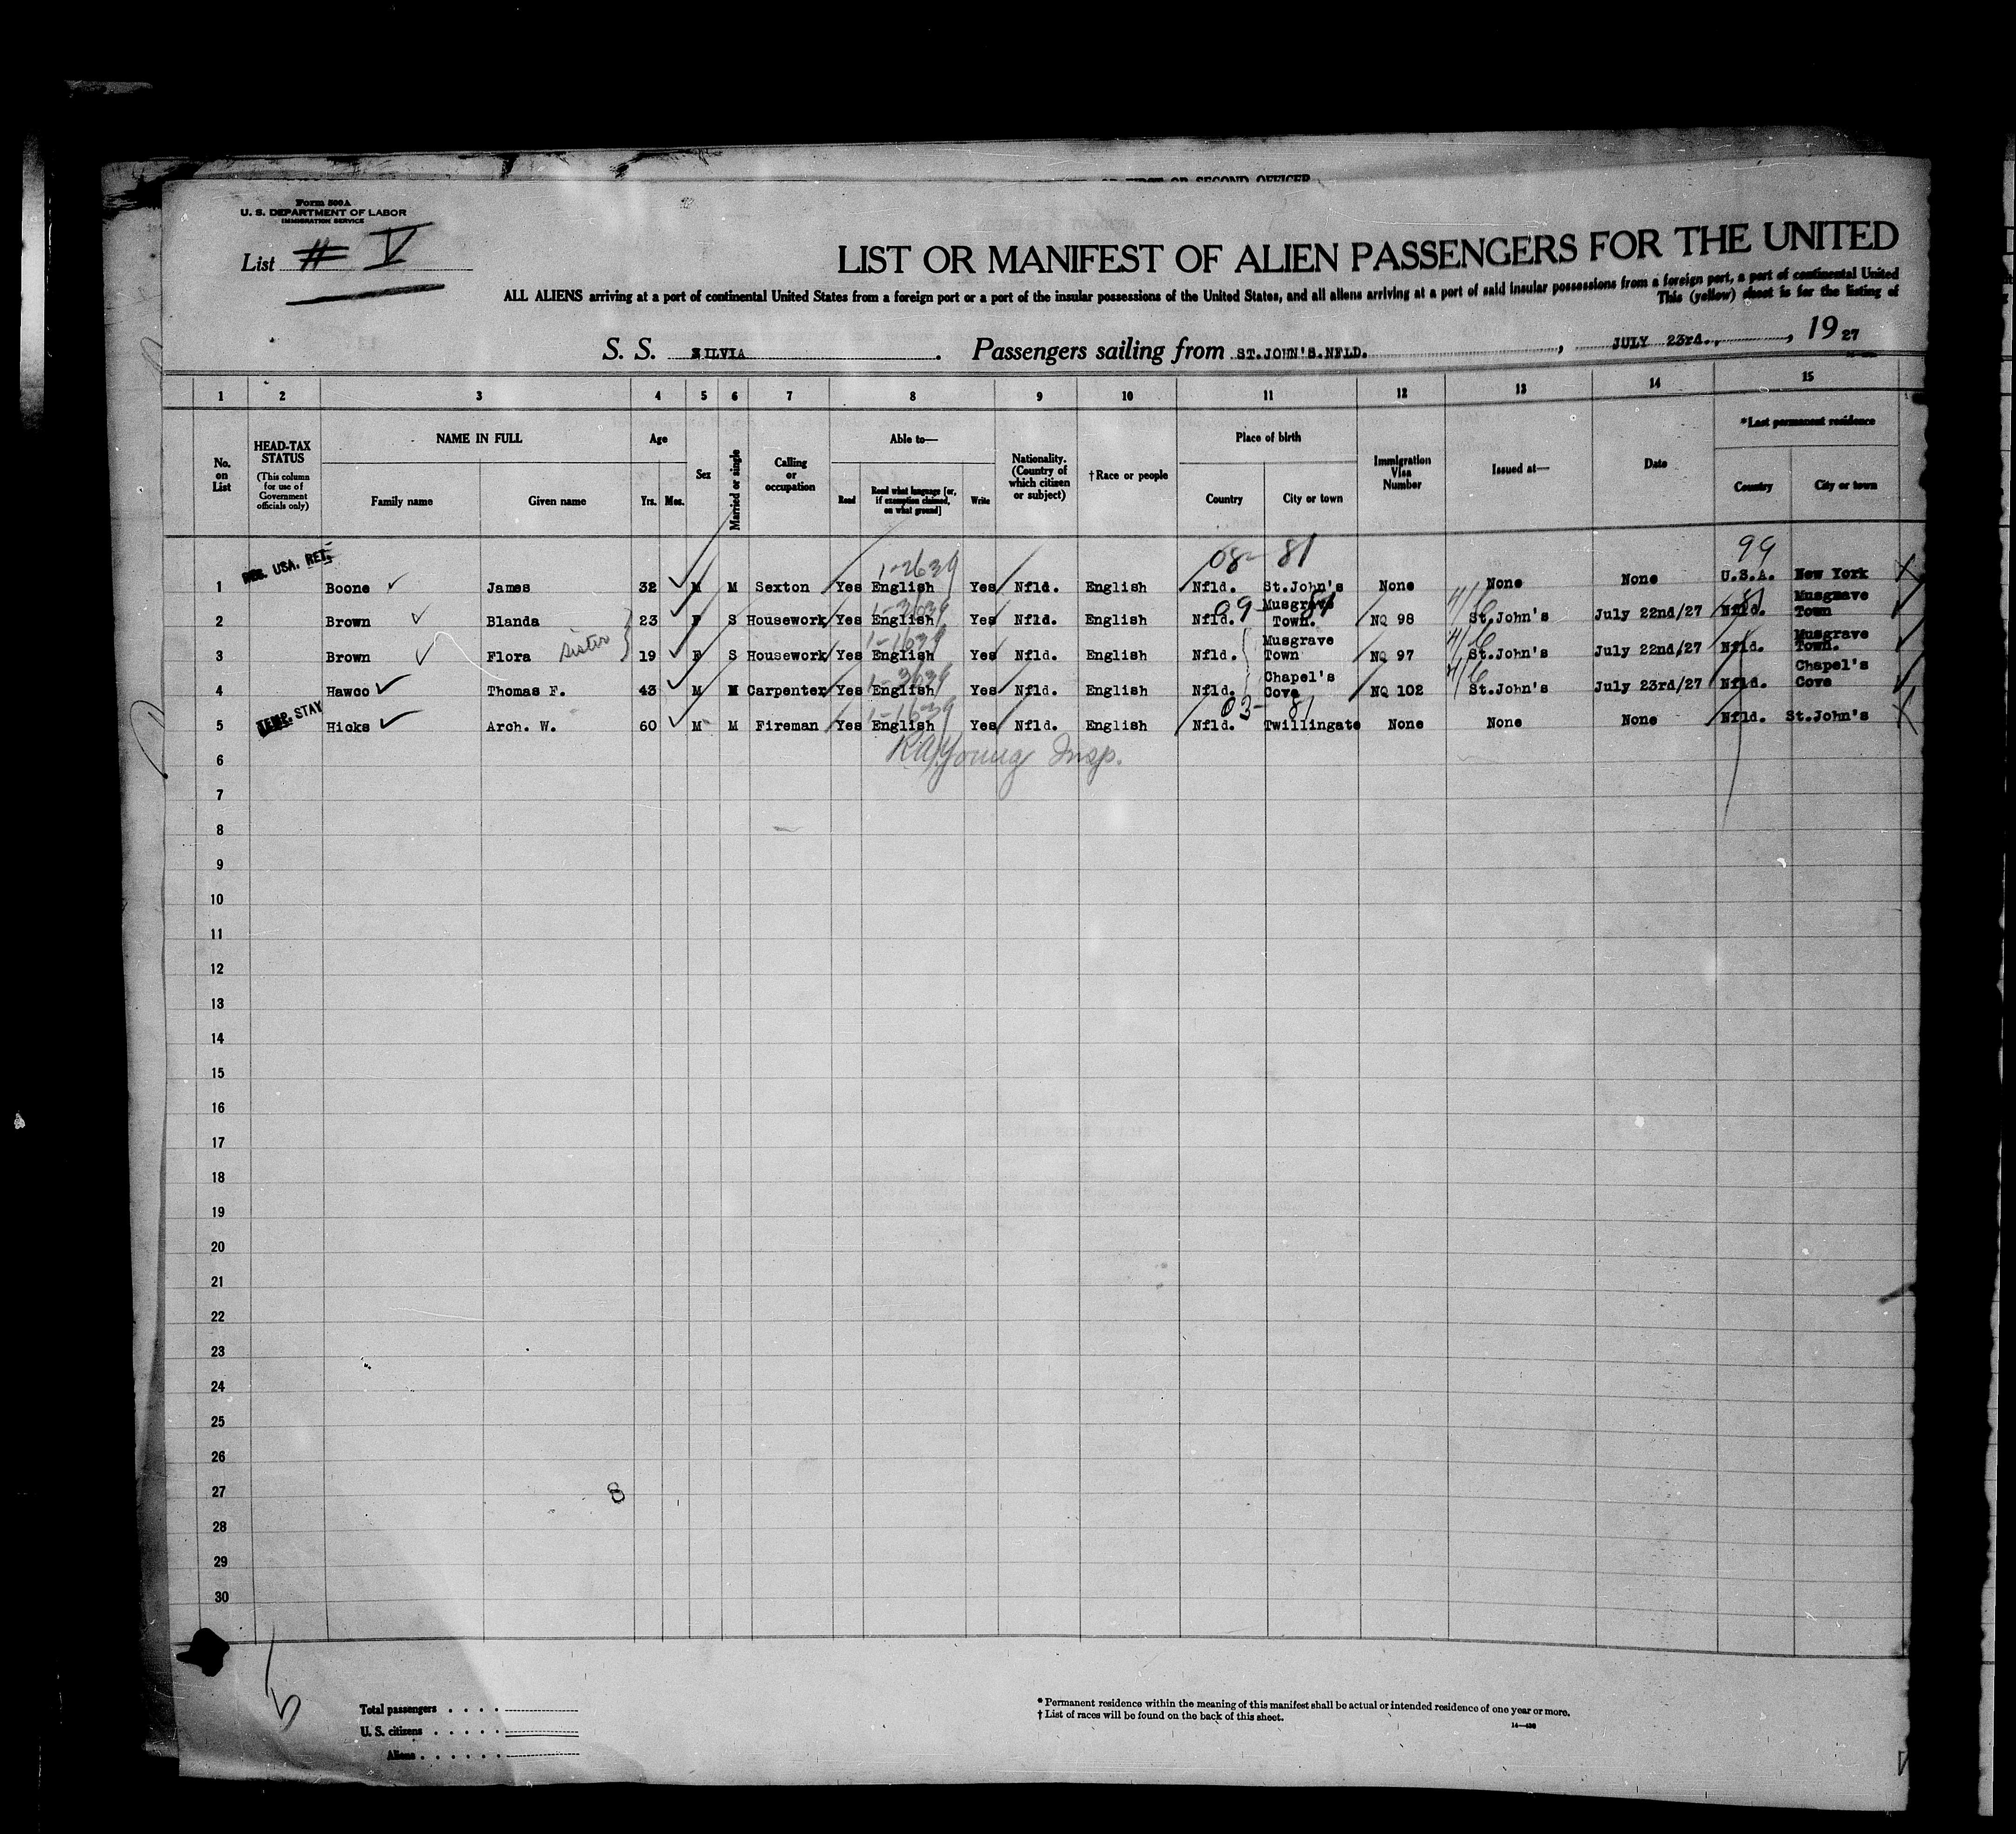 OR FIRST OR SECOND OFFICER
Form 500A
U. S. DEPARTMENT OF LABOR
IMMIGRATION SERVICE
List # V
LIST OR MANIFEST OF ALIEN PASSENGERS FOR THE UNITED
ALL ALIENS arriving at a port of continental United States from a foreign port or a port of the insular possessions of the United States, and all aliens arriving at a port of said insular possessions from a foreign port, a port of continental United
This (yellow) sheet is for the listing of
S. S. SILVIA. Passengers sailing from ST.JOHN'S.NFLD., JULY 23rd., 1927
1 2 3 4 5 6 7 8 9 10 11 12 13 14 15
No. on List
HEAD-TAX STATUS
(This column for use of Government officials only)
NAME IN FULL
Family name Given name
Age
Yrs. Mos.
Sex
Married or single
Calling or occupation
Able to—
Read
Read what language [or, if exemption claimed, on what ground]
Write
Nationality. (Country of which citizen or subject)
†Race or people
Place of birth
Country City or town
Immigration Visa Number
Issued at—
Date
*Last permanent residence
Country City or town
1-2639 08- 81 99
1 RES. USA. RET. Boone James 32 M M Sexton Yes English Yes Nfld. English Nfld. St.John's None None None U.S.A. New York
2 Brown Blanda 23 F S Housework Yes English Yes Nfld. English Nfld. Musgrave Town. NQ 98 St.John's July 22nd/27 Nfld. Musgrave Town
3 Brown Flora sister 19 F S Housework Yes English Yes Nfld. English Nfld. Musgrave Town NQ 97 St.John's July 22nd/27 Nfld. Musgrave Town.
4 Hawco Thomas F. 43 M M Carpenter Yes English Yes Nfld. English Nfld. Chapel's Cove NQ 102 St.John's July 23rd/27 Nfld. Chapel's Cove
03- 81
5 TEMP. STAY Hicks Arch. W. 60 M M Fireman Yes English Yes Nfld. English Nfld. Twillingate None None None Nfld. St.John's
6 Young Insp.
7
8
9
10
11
12
13
14
15
16
17
18
19
20
21
22
23
24
25
26
27 8
28
29
30
5
Total passengers
U. S. citizens
Aliens
* Permanent residence within the meaning of this manifest shall be actual or intended residence of one year or more.
† List of races will be found on the back of this sheet.